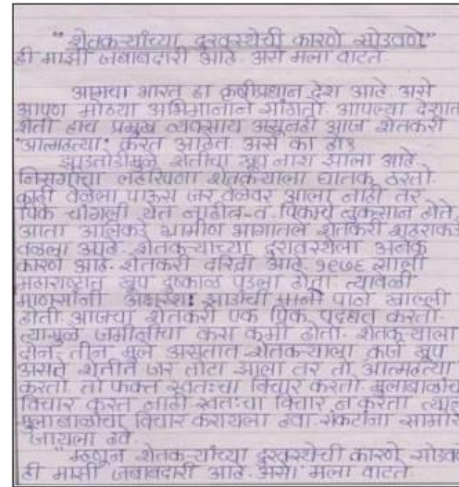 "शेतकऱ्यांच्या दुरवस्थेची कारणे सोडवणे"
ही माझी जबाबदारी आहे. असे मला वाटते
आमचा भारत हा कृषीप्रधान देश आहे असे
आपण मोठ्या अभिमानाने सांगतो आपल्या देशात
शेती हाच प्रमुख व्यवसाय असूनही आज शेतकरी
आत्महत्या करत आहेत. असे का हो?
झाडतोडीमुळे शेतीचा खूप नाश झाला आहे
निसर्गाचा लहरीपणा शेतकऱ्याला घातक ठरतो
काही वेळेला पाऊस जर वेळेवर आला नाही तर
पिके चांगली येत नाहीत व पिकाचे नुकसान होते
आता अलिकडे ग्रामीण भागातले शेतकरी शहराकडे
वळला आहे. शेतकऱ्याच्या दुरावस्थेला अनेक
कारणे आहे. शेतकरी दरिद्री आहे १९७६ साली
महाराष्ट्रात खूप दुष्काळ पडला होता त्यावेळी
माणसांनी अक्षरशः झाडांची पाने खाल्ली
होती. आजचा शेतकरी एक पिक पद्धत करतो
त्यामुळे जमीनीचा कस कमी होतो. शेतकऱ्याला
दोन, तीन मुले असतात शेतकऱ्याला कर्ज खूप
असते शेतीत जर तोटा आला तर तो आत्महत्या
करतो तो फक्त स्वतःचा विचार करतो मुलाबाळांचा
विचार करत नाही स्वतःचा विचार न करता त्याने
मुलाबाळांचा विचार करायला हवा. संकटांना सामोरे
जायला हवे
"म्हणून शेतकऱ्यांच्या दुरवस्थेची कारणे सोडवणे
ही माझी जबाबदारी आहे. असे मला वाटते